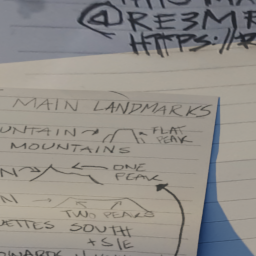 @RE3M
HTTPS://R
MAIN LANDMARKS
UNTAIN → ← FLAT
PEAK
MOUNTAINS
N → ← ONE
PEAK
N →
TWO PEAKS
UETTES SOUTH
+ S/E